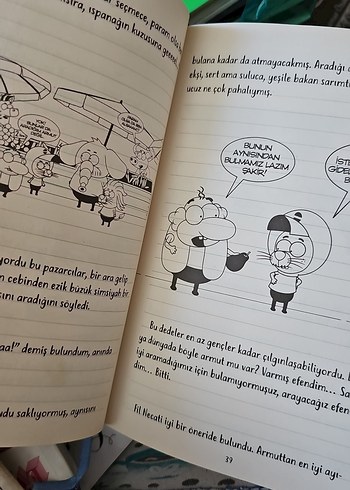 seçmece, param olsa
ıspanağın kuzusuna gel
YOK!
DEĞİL
yordu bu pazarcılar, bir ara gelip
cebinden ezik büzük simsiyah bir
sını aradığını söyledi.
aa!” demiş bulundum, anında
udu saklıyormuş, aynısını
bulana kadar da atmayacakmış. Aradığı
ekşi, sert ama suluca, yeşile bakan sarımtı
ucuz ne çok pahalıymış.
BUNUN
AYNISINDAN
BULMAMIZ LAZIM
ŞAKİR!
İSTE
GİDEL
B
Bu dedeler en az gençler kadar çılgınlaşabiliyordu.
ya dünyada böyle armut mu var? Varmış efendim... Sa
iyi aramadığımız için bulamıyormuşuz, arayacağız efen
dim... Bitti.
Fil Necati iyi bir öneride bulundu. Armuttan en iyi ayı-
39